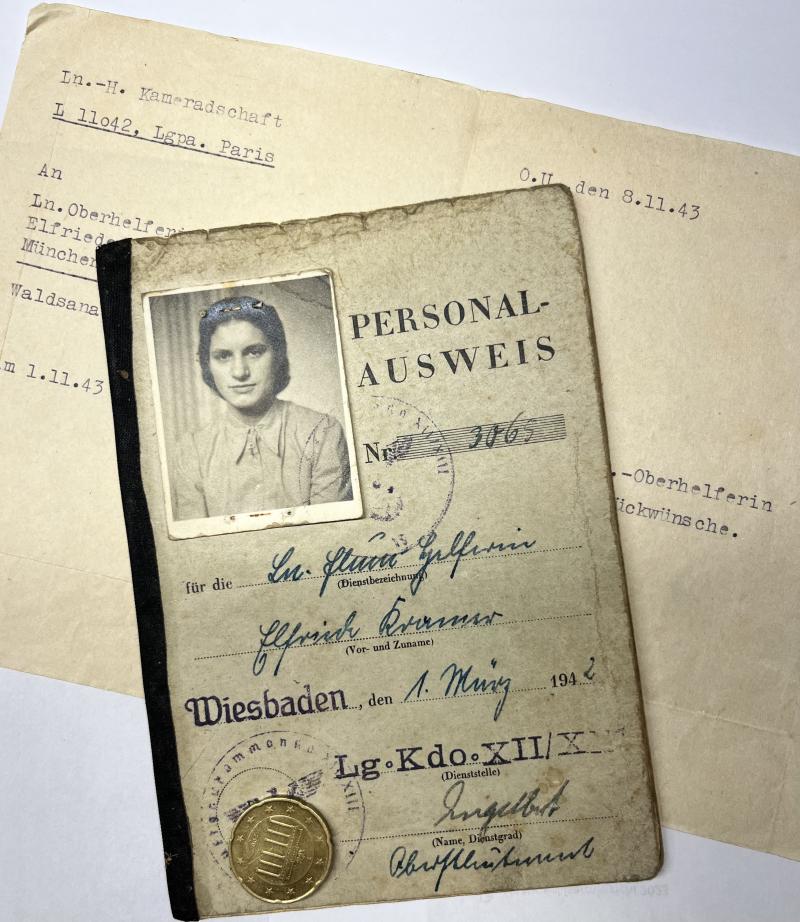 Ln.-H. Kameradschaft
L 11o42, Lgpa. Paris
An
O.U. den 8.11.43
Ln.Oberhelferin
Elfriede
München
Waldsana
m 1.11.43
.-Oberhelferin
ückwünsche.
PERSONAL-
AUSWEIS
Nr 3069
für die Ln. Helferin
(Dienstbezeichnung)
Elfriede Kramer
(Vor- und Zuname)
Wiesbaden, den 1. März 1942
Lg.Kdo.XII/XIII
(Dienststelle)
Engelbert
(Name, Dienstgrad)
Oberstleutnant